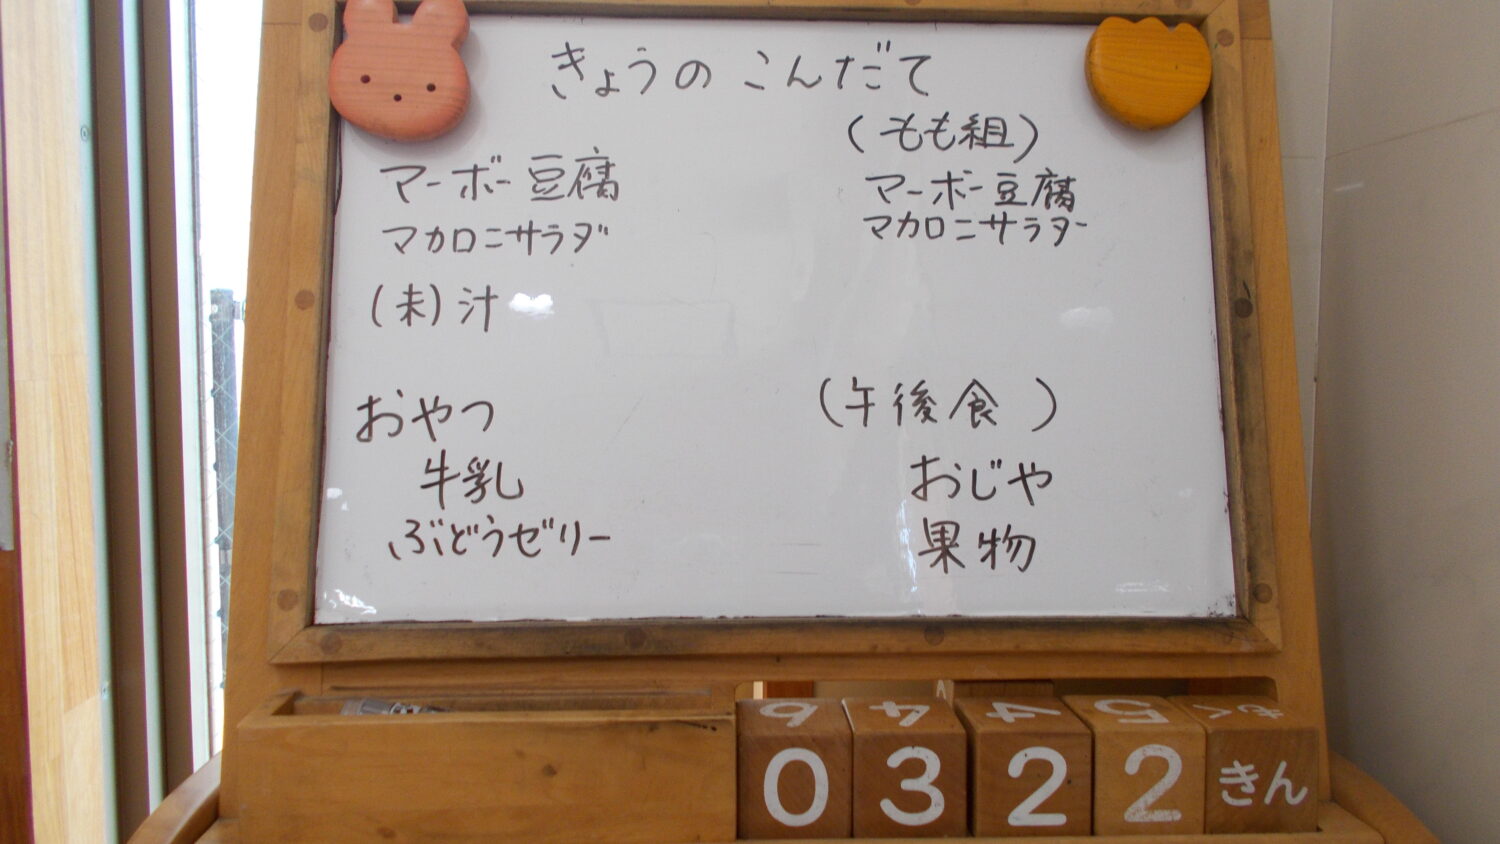 きょうの こんだて
マーボー豆腐
マカロニサラダ
(未)汁
おやつ
牛乳
ぶどうゼリー
(もも組)
マーボー豆腐
マカロニサラダー
(午後食)
おじや
果物
6 4 4 5 もく
0 3 2 2 きん